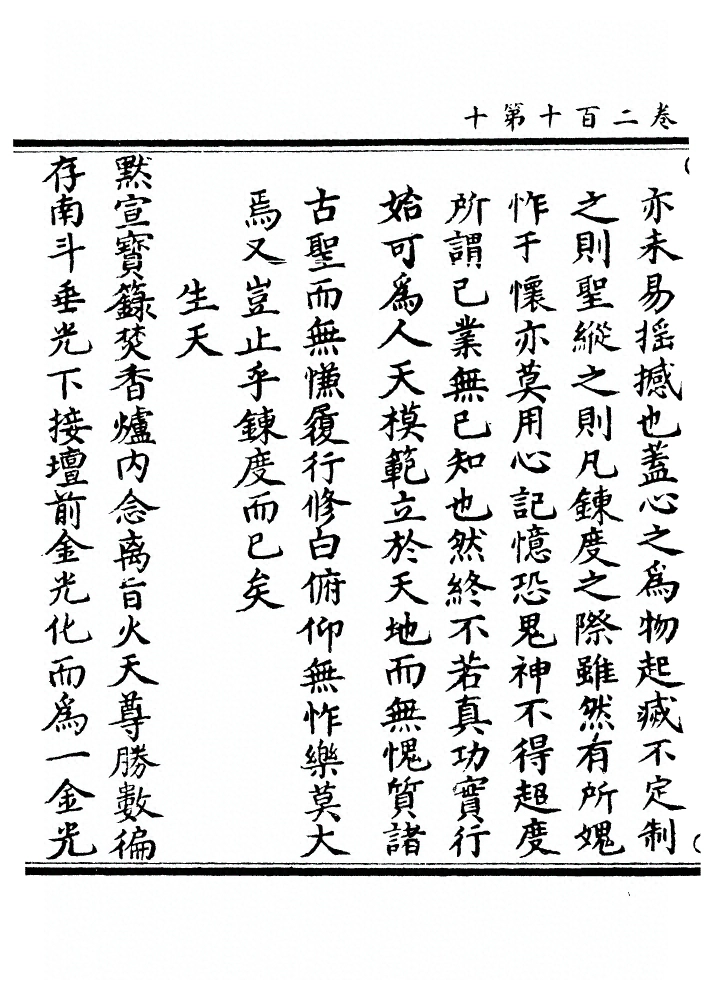 卷二百十第十
亦未易摇撼也蓋心之爲物起滅不定制
之則聖縱之則凡鍊度之際雖然有所媿
怍于懷亦莫用心記憶恐鬼神不得超度
所謂已業無已知也然終不若真功實行
始可爲人天模範立於天地而無愧質諸
古聖而無慊履行修白俯仰無怍樂莫大
焉又豈止乎鍊度而已矣
生天
黙宣寳籙焚香爐内念离旨火天尊勝數徧
存南斗垂光下接壇前金光化而爲一金光